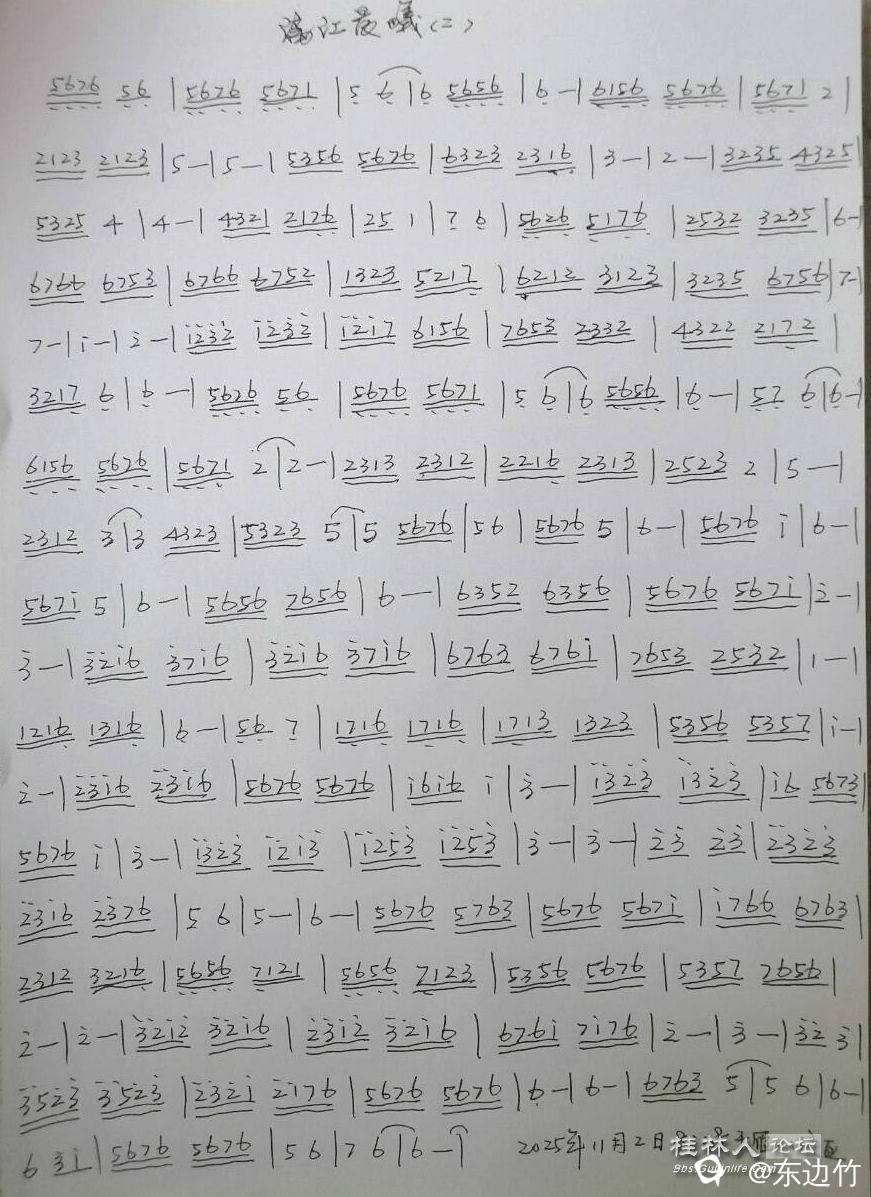 漓江晨曦(二)
5676 56 | 5676 5671 | 5 6 | 6 5656 | 6 — | 6156 5676 | 5671 2 |
2123 2123 | 5 — | 5 — | 5356 5676 | 6323 2316 | 3 — | 2 — | 3235 4325 |
5325 4 | 4 — | 4321 2176 | 25 1 | 7 6 | 5626 5176 | 2532 3235 | 6 — |
6766 6753 | 6766 6752 | 1323 5217 | 6212 3123 | 3235 6756 | 7 — |
7 — | i — | 2̇ — | i2̇3̇2̇ i2̇3̇2̇ | i2̇i7 6156 | 7653 2332 | 4322 2172 |
3217 6 | 6 — | 5626 56 | 5676 5671 | 5 6 | 6 5656 | 6 — | 57 6 | 6 — |
6156 5676 | 5671 2 | 2 — | 2313 2312 | 2216 2313 | 2523 2 | 5 — |
2312 3 | 3 4323 | 5323 5 | 5 5676 | 56 | 5676 5 | 6 — | 5676 i | 6 — |
567i 5 | 6 — | 5656 7656 | 6 — | 6352 6356 | 5676 567i | 2̇ — |
3̇ — | 3̇2̇i6 3̇7i6 | 3̇2̇i6 3̇7i6 | 6763 676i | 7653 2532 | 1 — |
1216 1316 | 6 — | 56 7 | 1716 1716 | 1713 1323 | 5356 5357 | i — |
2̇ — | 2̇3̇i6 2̇3̇i6 | 5676 5676 | i6i6 i | 3̇ — | i3̇2̇3̇ i3̇2̇3̇ | i6 5673 |
5676 i | 3̇ — | i3̇2̇3̇ i2̇i3̇ | i2̇53̇ i2̇53̇ | 3̇ — | 3̇ — | 2̇3̇ 2̇3̇ | 2̇3̇2̇3̇
2̇3̇i6 2̇3̇76 | 5 6 | 5 — | 6 — | 5676 5763 | 5676 567i | i766 6763 |
2312 3216 | 5656 7121 | 5656 7123 | 5356 5676 | 5357 7656 |
2̇ — | 2̇ — | 3̇2̇i2̇ 3̇2̇i6 | 2̇3̇i2̇ 3̇2̇i6 | 676i 7i76 | 2̇ — | 3̇ — | 3̇2̇ 3̇ |
3̇52̇3̇ 3̇52̇3̇ | 2̇3̇2̇i 2̇i76 | 5676 5676 | 6 — | 6 — | 6763 5 | 5 6 | 6 — |
6 3̇i | 5676 5676 | 5 6 | 7 6 | 6 — | 2025年11月2日
桂林人论坛
@东边竹